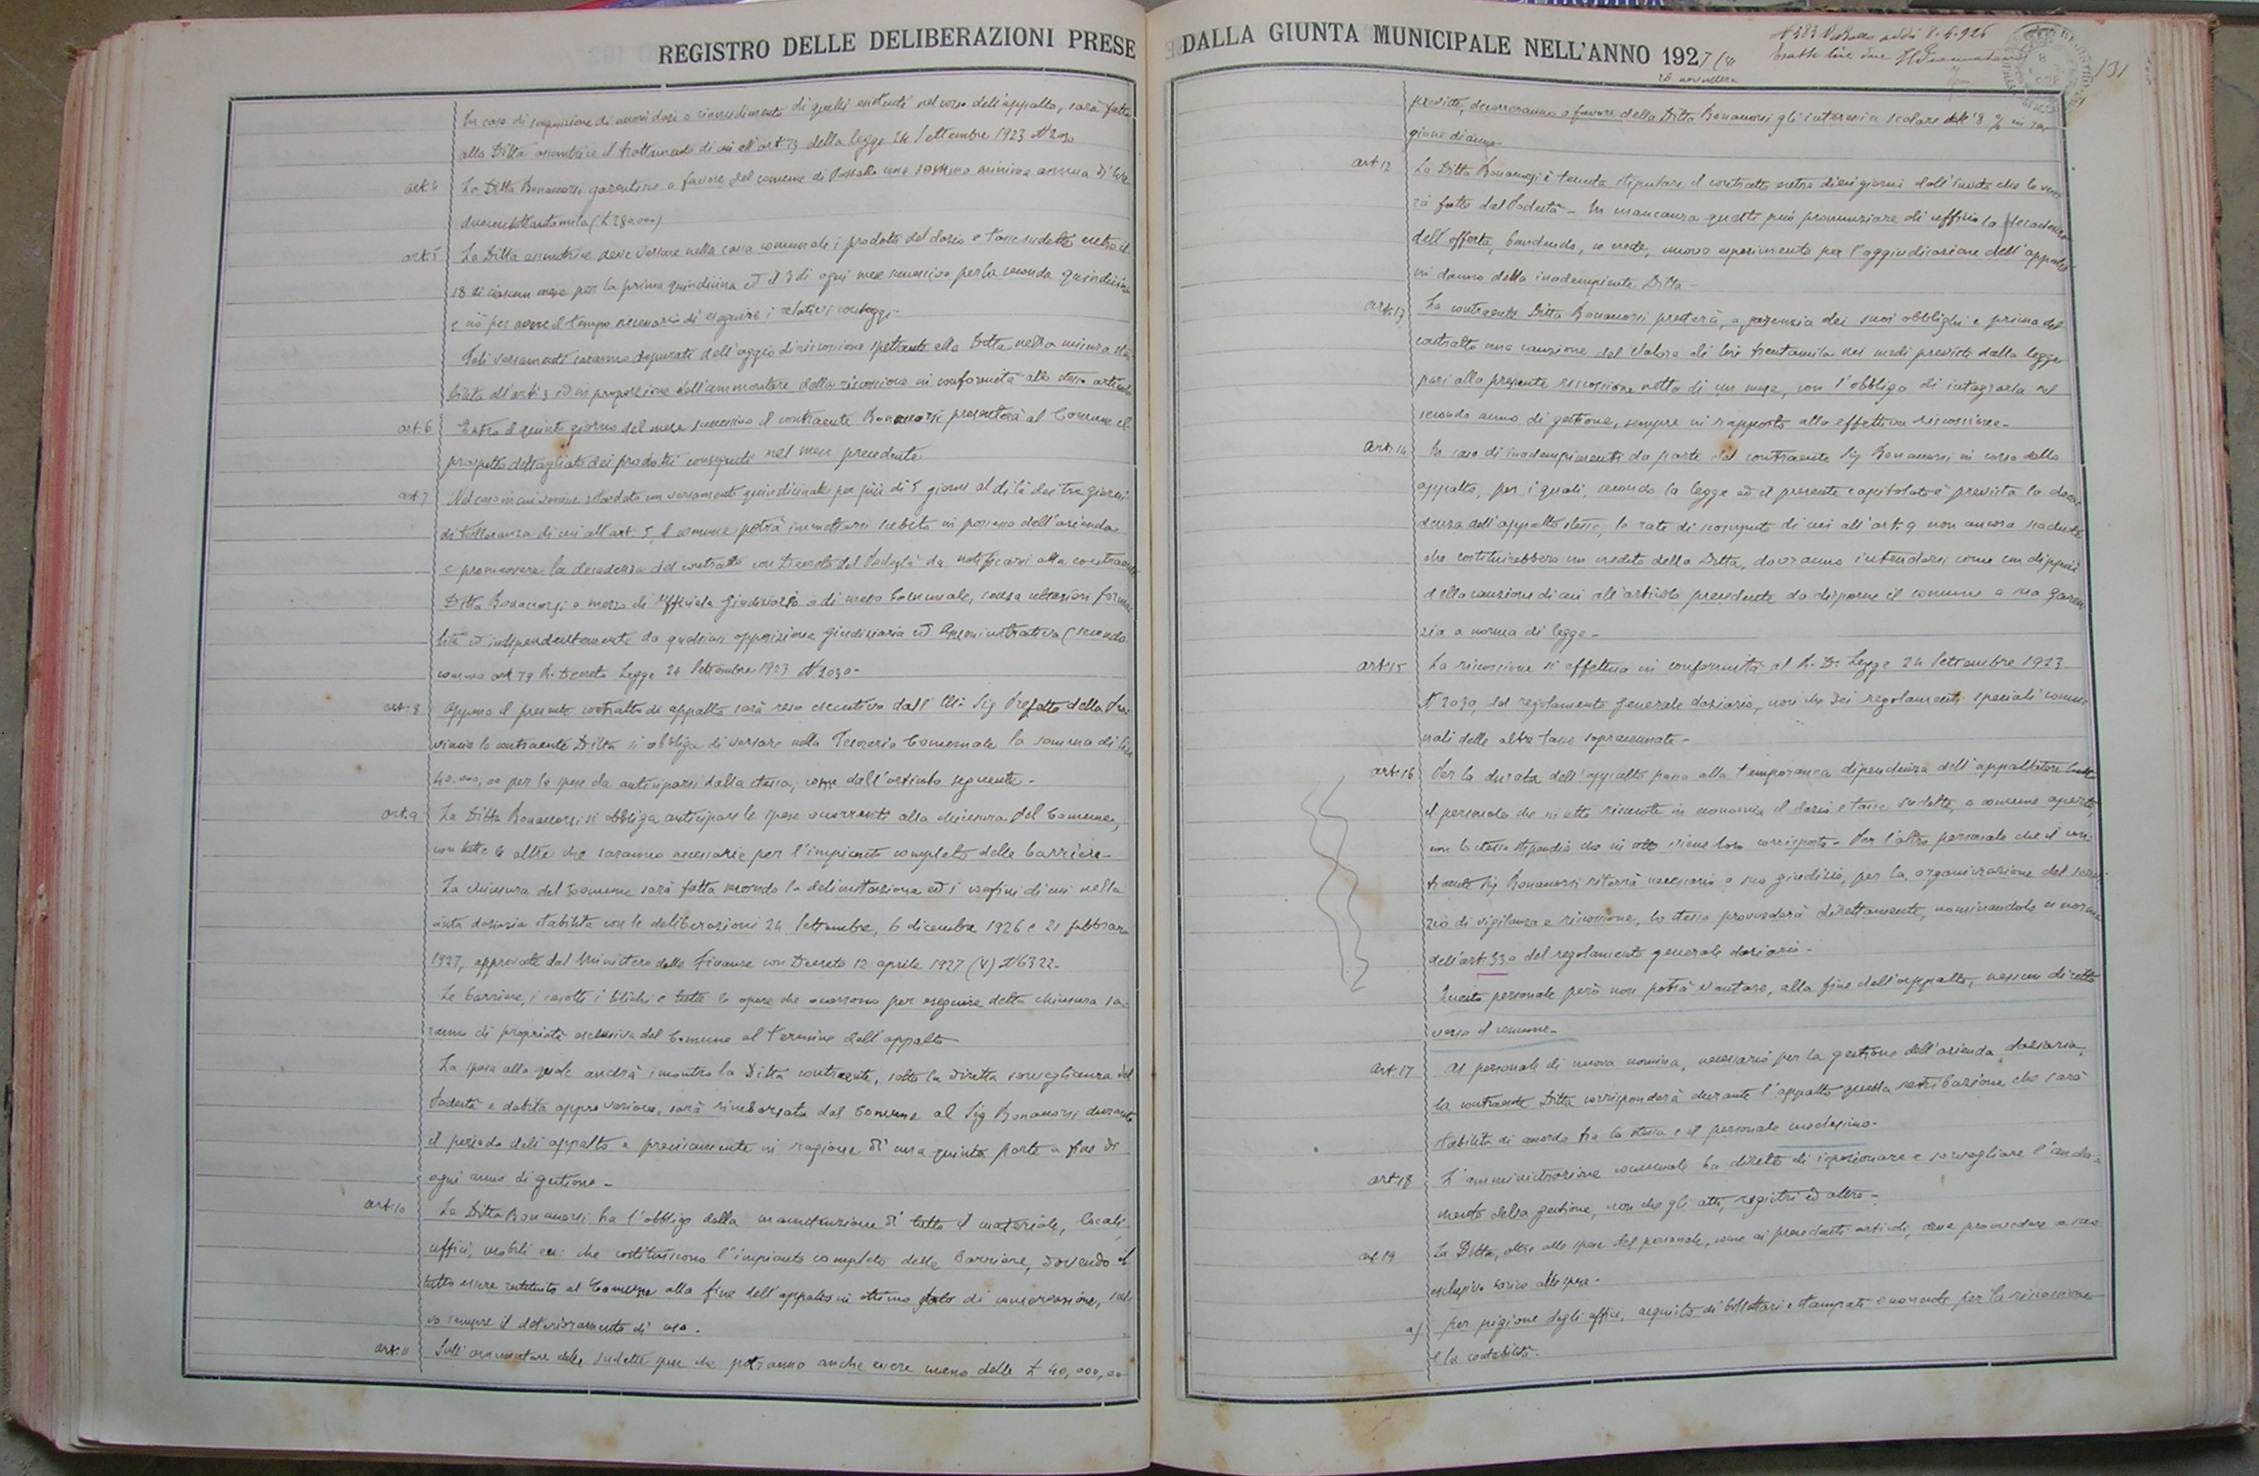 REGISTRO DELLE DELIBERAZIONI PRESE
In caso di soppressione di nuovi dazi o rinvedimento di quelli esistenti nel corso dell'appalto, sarà fatto
alla Ditta assuntrice il trattamento di cui all'art 73 della legge 24 Settembre 1923 N 2030
art. 4 La Ditta Bonanorsi garentisce a favore del comune di una somma minima annua di lire
duecentottantamila (£ 280.000)
art. 5 La Ditta assuntrice deve versare nella cassa comunale i prodotti del dazio e tasse sudette entro il
18 di ciascun mese per la prima quindicina ed il 3 di ogni mese successivo per la seconda quindicina
e ciò per avere il tempo necessario di eseguire i relativi conteggi-
Tali versamenti saranno depurati dell'aggio di riscossione spettante alla Ditta nella misura sta
bilita all'art 3 ed in proporzione dell'ammontare della riscossione in conformità allo stesso articolo
art. 6 Entro il quinto giorno del mese successivo il contraente Bonanorsi presenterà al Comune il
prospetto dettagliato dei prodotti conseguiti nel mese precedente
art. 7 Nel caso in cui venisse ritardato un versamento quindicinale per più di 5 giorni al di là dei tre giorni
di tolleranza di cui all'art. 5, il comune potrà immettersi subito in possesso dell'azienda
e promuovere la decadenza del contratto con Decreto del Podestà da notificarsi alla contraente
Ditta Bonanorsi a mezzo di Ufficiale Giudiziario o di messo Comunale, senza ulteriori forma
lità ed indipendentemente da qualsiasi opposizione giudiziaria ed Amministrativa (secondo
comma art 79 R. Decreto Legge 24 Settembre 1923 N 2030-
art. 8 Appena il presente contratto di appalto sarà reso esecutivo dall'Ill. Sig Prefetto della Pro
vincia la contraente Ditta si obbliga di versare nella Tesoreria Comunale la somma di lire
40.000,00 per le spese da anticiparsi dalla stessa, come dall'articolo seguente-
art. 9 La Ditta Bonanorsi si obbliga anticipare le spese occorrenti alla chiusura del Comune,
con tutte le altre che saranno necessarie per l'impianto completo delle barriere-
La chiusura del Comune sarà fatta secondo la delimitazione ed i confini di cui nella
cinta daziaria stabilita con le deliberazioni 24 Settembre, 6 dicembre 1926 e 21 febbraro
1927, approvate dal Ministero delle Finanze con Decreto 12 aprile 1927 (V) N 6322-
Le barriere, i casotti i bilichi e tutte le opere che occorrono per eseguire detta chiusura sa
ranno di proprietà esclusiva del Comune al termine dell'appalto
La spesa alla quale andrà incontro la Ditta contraente, sotto la diretta sorveglianza del
Podestà e debita approvazione, sarà rimborsata dal Comune al Sig Bonanorsi durante
il periodo dell'appalto e precisamente in ragione di una quinta parte a fine di
ogni anno di gestione-
art. 10 La Ditta Bonanorsi ha l'obbligo della manutenzione di tutto il materiale, locali,
uffici, mobili ecc: che costituiscono l'impianto completo delle Barriere, dovendo il
tutto essere restituito al Comune alla fine dell'appalto in ottimo stato di conservazione, sal
vo sempre il deterioramento di uso-
art. 11 Sull'ammontare delle sudette spese che potranno anche essere meno delle £ 40,000,00
DALLA GIUNTA MUNICIPALE NELL'ANNO 1927
26 novembre
131
previste, decorreranno a favore della Ditta Bonanorsi gli interessi a scalare dell'8 % in ra
gione di anno-
art. 12 La Ditta Bonanorsi è tenuta stipulare il contratto entro dieci giorni dall'invito che le ver
rà fatto dal Podestà- In mancanza questi può pronunziare di ufficio la decadenza
dell'offerta, bandendo, se crede, nuovo esperimento per l'aggiudicazione dell'appalto
in danno della inadempiente Ditta-
art. 13 La contraente Ditta Bonanorsi presterà, a garenzia dei suoi obblighi e prima del
contratto una cauzione del valore di lire trentamila nei modi previsti dalla legge
pari alla presunta riscossione netta di un mese, con l'obbligo di integrarla nel
secondo anno di gestione, sempre in rapporto alla effettiva riscossione-
art. 14 In caso di inadempimenti da parte del contraente Sig Bonanorsi in corso dello
appalto, per i quali, secondo la legge ed il presente capitolato è prevista la deca
denza dell'appalto stesso, le rate di scomputo di cui all'art. 9 non ancora scadute
che costituirebbero un credito della Ditta, dovranno intendersi come un dippiù
della cauzione di cui all'articolo precedente da disporne il comune a sua garen
zia a norma di legge-
art. 15 La riscossione si effettua in conformità al R. D. Legge 24 Settembre 1923
N 2030, del regolamento generale daziario, non che dei regolamenti speciali comu
nali delle altre tasse sopracennate-
art. 16 Per la durata dell'appalto passa alla temporanea dipendenza dell'appaltatore tutto
il personale che in atto riscuote in economia il dazio e tasse sudette, a comune aperto,
con lo stesso stipendio che in atto viene loro corrisposto- Per l'altro personale che il con
traente Sig Bonanorsi riterrà necessario a suo giudizio, per la organizzazione del servi
zio di vigilanza e riscossione, lo stesso provvederà direttamente, nominandolo a norma
dell'art 330 del regolamento generale daziario-
Questo personale però non potrà vantare, alla fine dell'appalto, nessun diritto
verso il comune-
art. 17 Al personale di nuova nomina, necessario per la gestione dell'azienda daziaria,
la contraente Ditta corrisponderà durante l'appalto quella retribuzione che sarà
stabilita di accordo tra la stessa e il personale medesimo-
art. 18 L'amministrazione comunale ha diritto di ispezionare e sorvegliare l'anda
mento della gestione, non che gli atti, registri ed altro-
art. 19 La Ditta, oltre alle spese del personale, come ai precedenti articoli, deve provvedere a suo
esclusivo carico alle spese-
a) per pigione degli uffici, acquisto di bollettari e stampati occorrenti per la riscossione
e la contabilità-